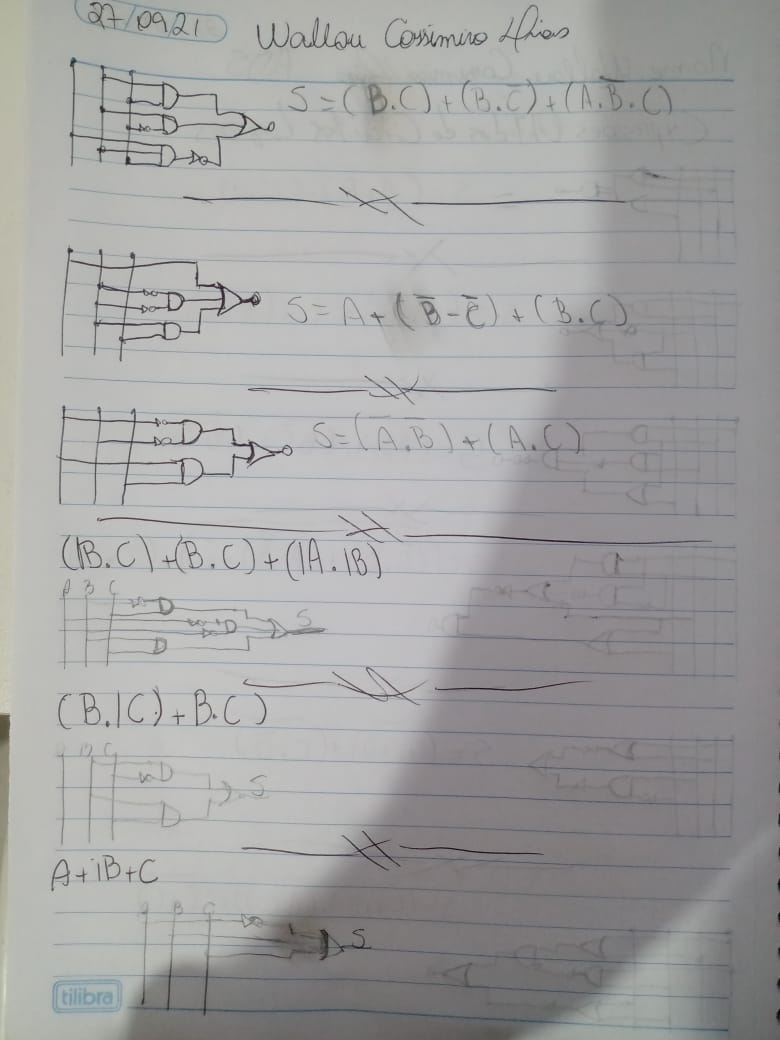 27/09/21
Wallou Cossimiro Dias
S = (B.C) + (B.C̅) + (A.B̅.C)
S = A + (B̅-C̅) + (B.C)
S = (A̅.B̅) + (A.C)
(|B.C) + (B.C) + (|A.|B)
A B C
S
(B.|C) + B.C)
S
A+iB+C
B C
S
tilibra